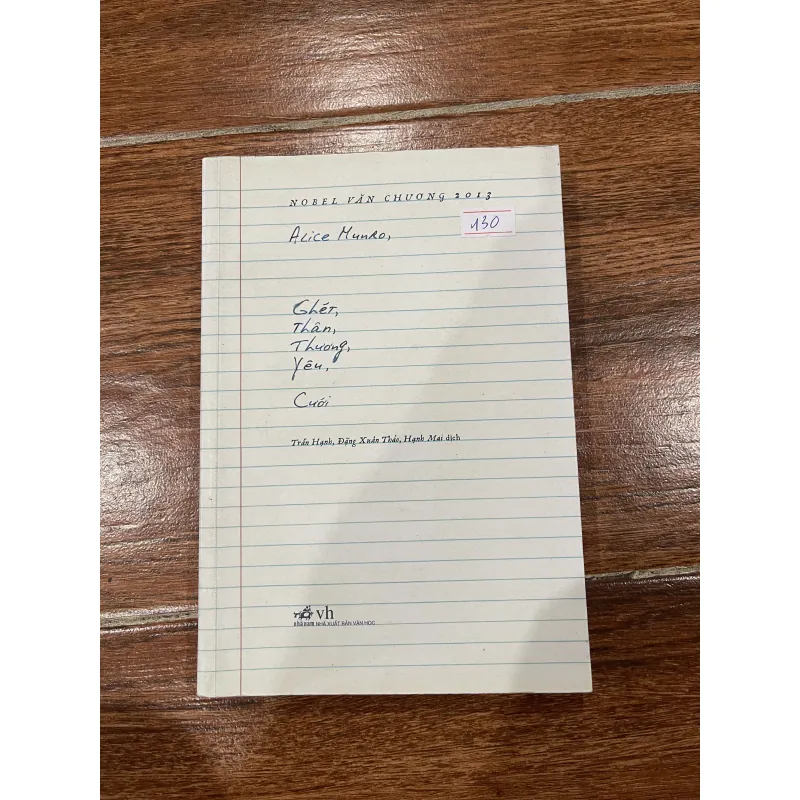 NOBEL VĂN CHƯƠNG 2013
130
ALice MunRo,
Ghét,
Thân,
Thương,
Yêu,
Cưới
Trần Hạnh, Đặng Xuân Thảo, Hạnh Mai dịch
vh
nhã nam NHÀ XUẤT BẢN VĂN HỌC